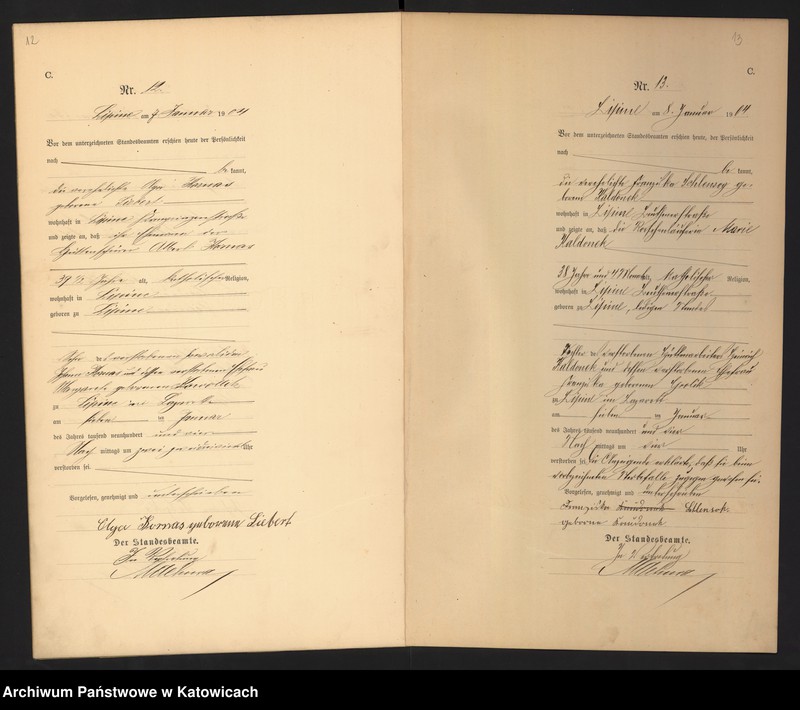 12
C.
Nr. 12.
Lipine am 7 Januar 1904
Vor dem unterzeichneten Standesbeamten erschien heute, der Persönlichkeit
nach
be kannt,
die verehelichte Olga Kornas
geborene Liebert
wohnhaft in Lipine
und zeigte an, daß ihr Ehemann der
Albert Kornas
39 1/2 Jahre alt, katholischer Religion,
wohnhaft in Lipine
geboren zu Lipine
Sohn des verstorbenen Invaliden
Kornas und dessen verstorbenen Ehefrau
geborenen
zu Lipine im Lazarette
am sieben ten Januar
des Jahres tausend neunhundert und vier
Nach mittags um zwei Uhr
verstorben sei.
Vorgelesen, genehmigt und unterschrieben
Olga Kornas geborene Liebert
Der Standesbeamte.
In Vertretung
13
C.
Nr. 13.
Lipine am 8. Januar 1904.
Vor dem unterzeichneten Standesbeamten erschien heute, der Persönlichkeit
nach
be kannt,
die verehelichte Franziska Schlensog ge-
borene Kaldonek
wohnhaft in Lipine Beuthenerstraße
und zeigte an, daß die Marie
Kaldonek
38 Jahre und Monate, katholischer Religion,
wohnhaft in Lipine Beuthenerstraße
geboren zu Lipine, ledigen Standes
Tochter des verstorbenen Hüttenarbeiters Heinrich
Kaldonek und dessen verstorbenen Ehefrau
Franziska geborenen
zu Lipine im Lazarett
am sieben ten Januar
des Jahres tausend neunhundert und vier
Nach mittags um vier Uhr
verstorben sei. Die Anzeigende erklärte, daß sie beim
vorbezeichneten Sterbefalle zugegen gewesen sei.
Vorgelesen, genehmigt und unterschrieben
Franziska
geborne
Der Standesbeamte.
In Vertretung
Archiwum Państwowe w Katowicach